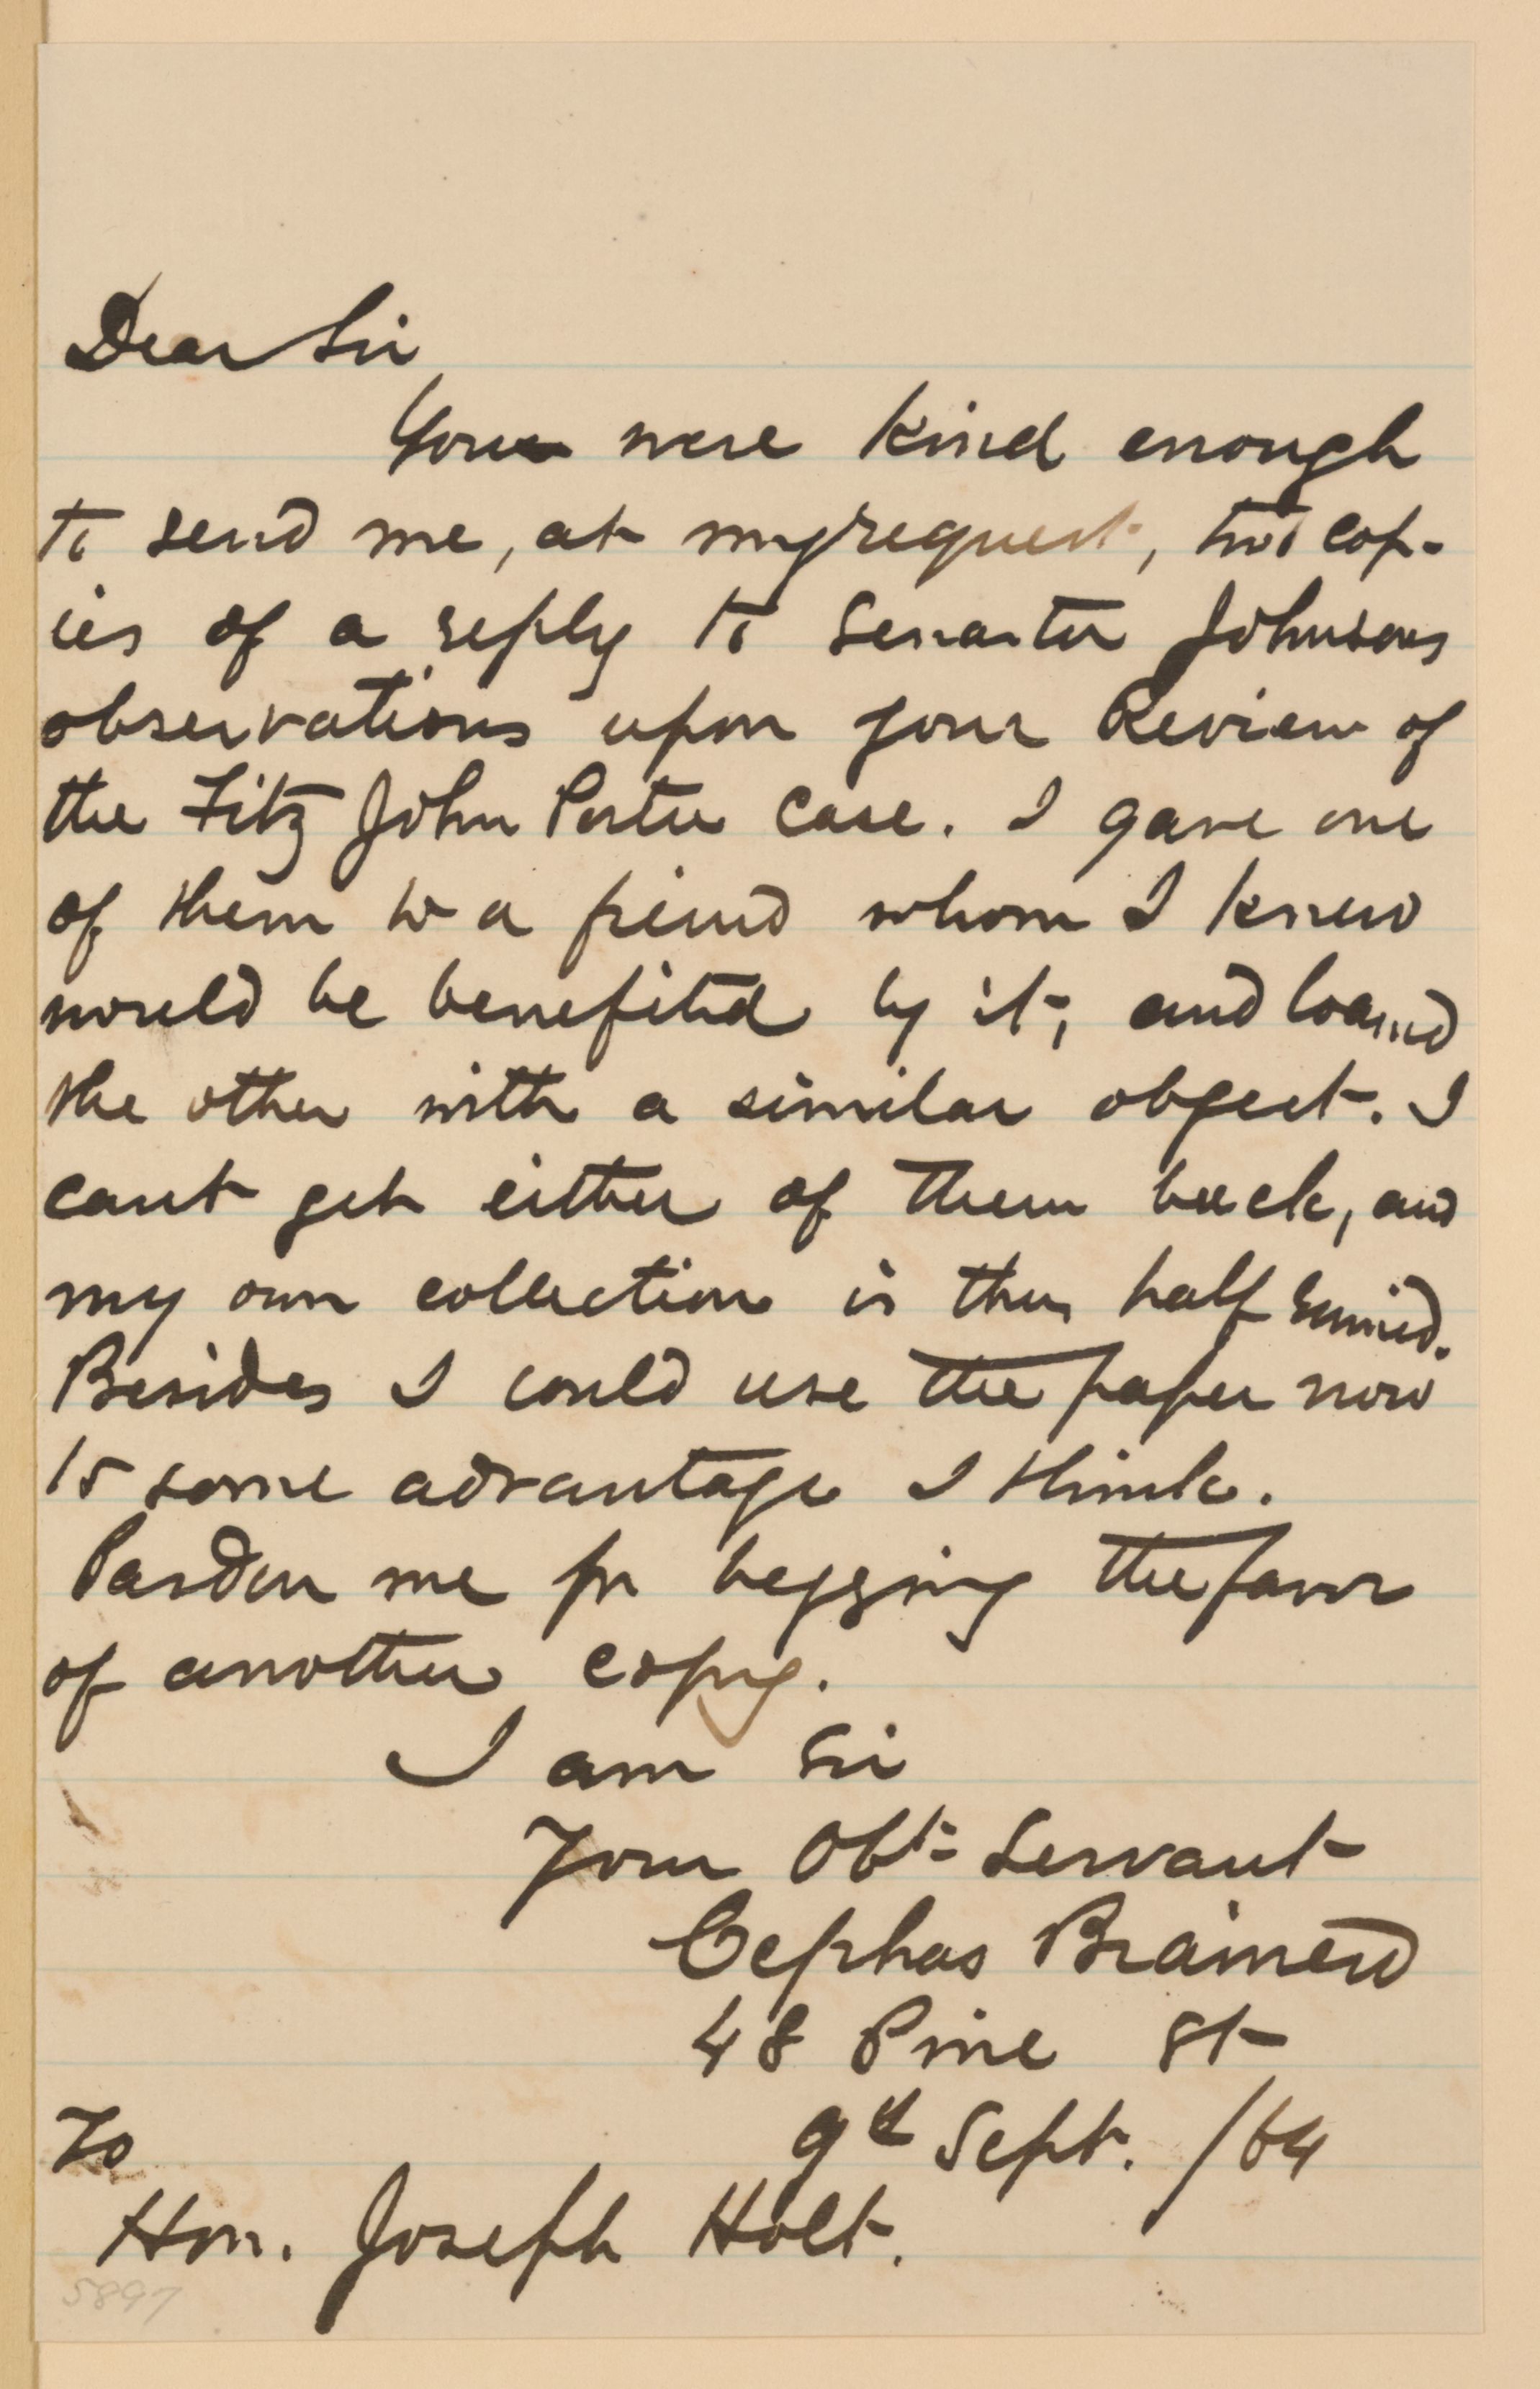 Dear Sir
You were kind enough
to send me, at my request, two cop-
ies of a reply to Senator Johnsons
observations upon your Review of
the Fitz John Porter case. I gave one
of them to a friend whom I knew
would be benefited by it, and loaned
the other with a similar object. I
cant get either of them back, and
my own collection is thus half ruined.
Besides I could use the paper now
to some advantage I think.
Pardon me for begging the favor
of another copy.
I am Sir
Your Obt= Servant
Cephas Brainerd
48 Pine St
9th Sept. /64
To
Hon. Joseph Holt.
5897